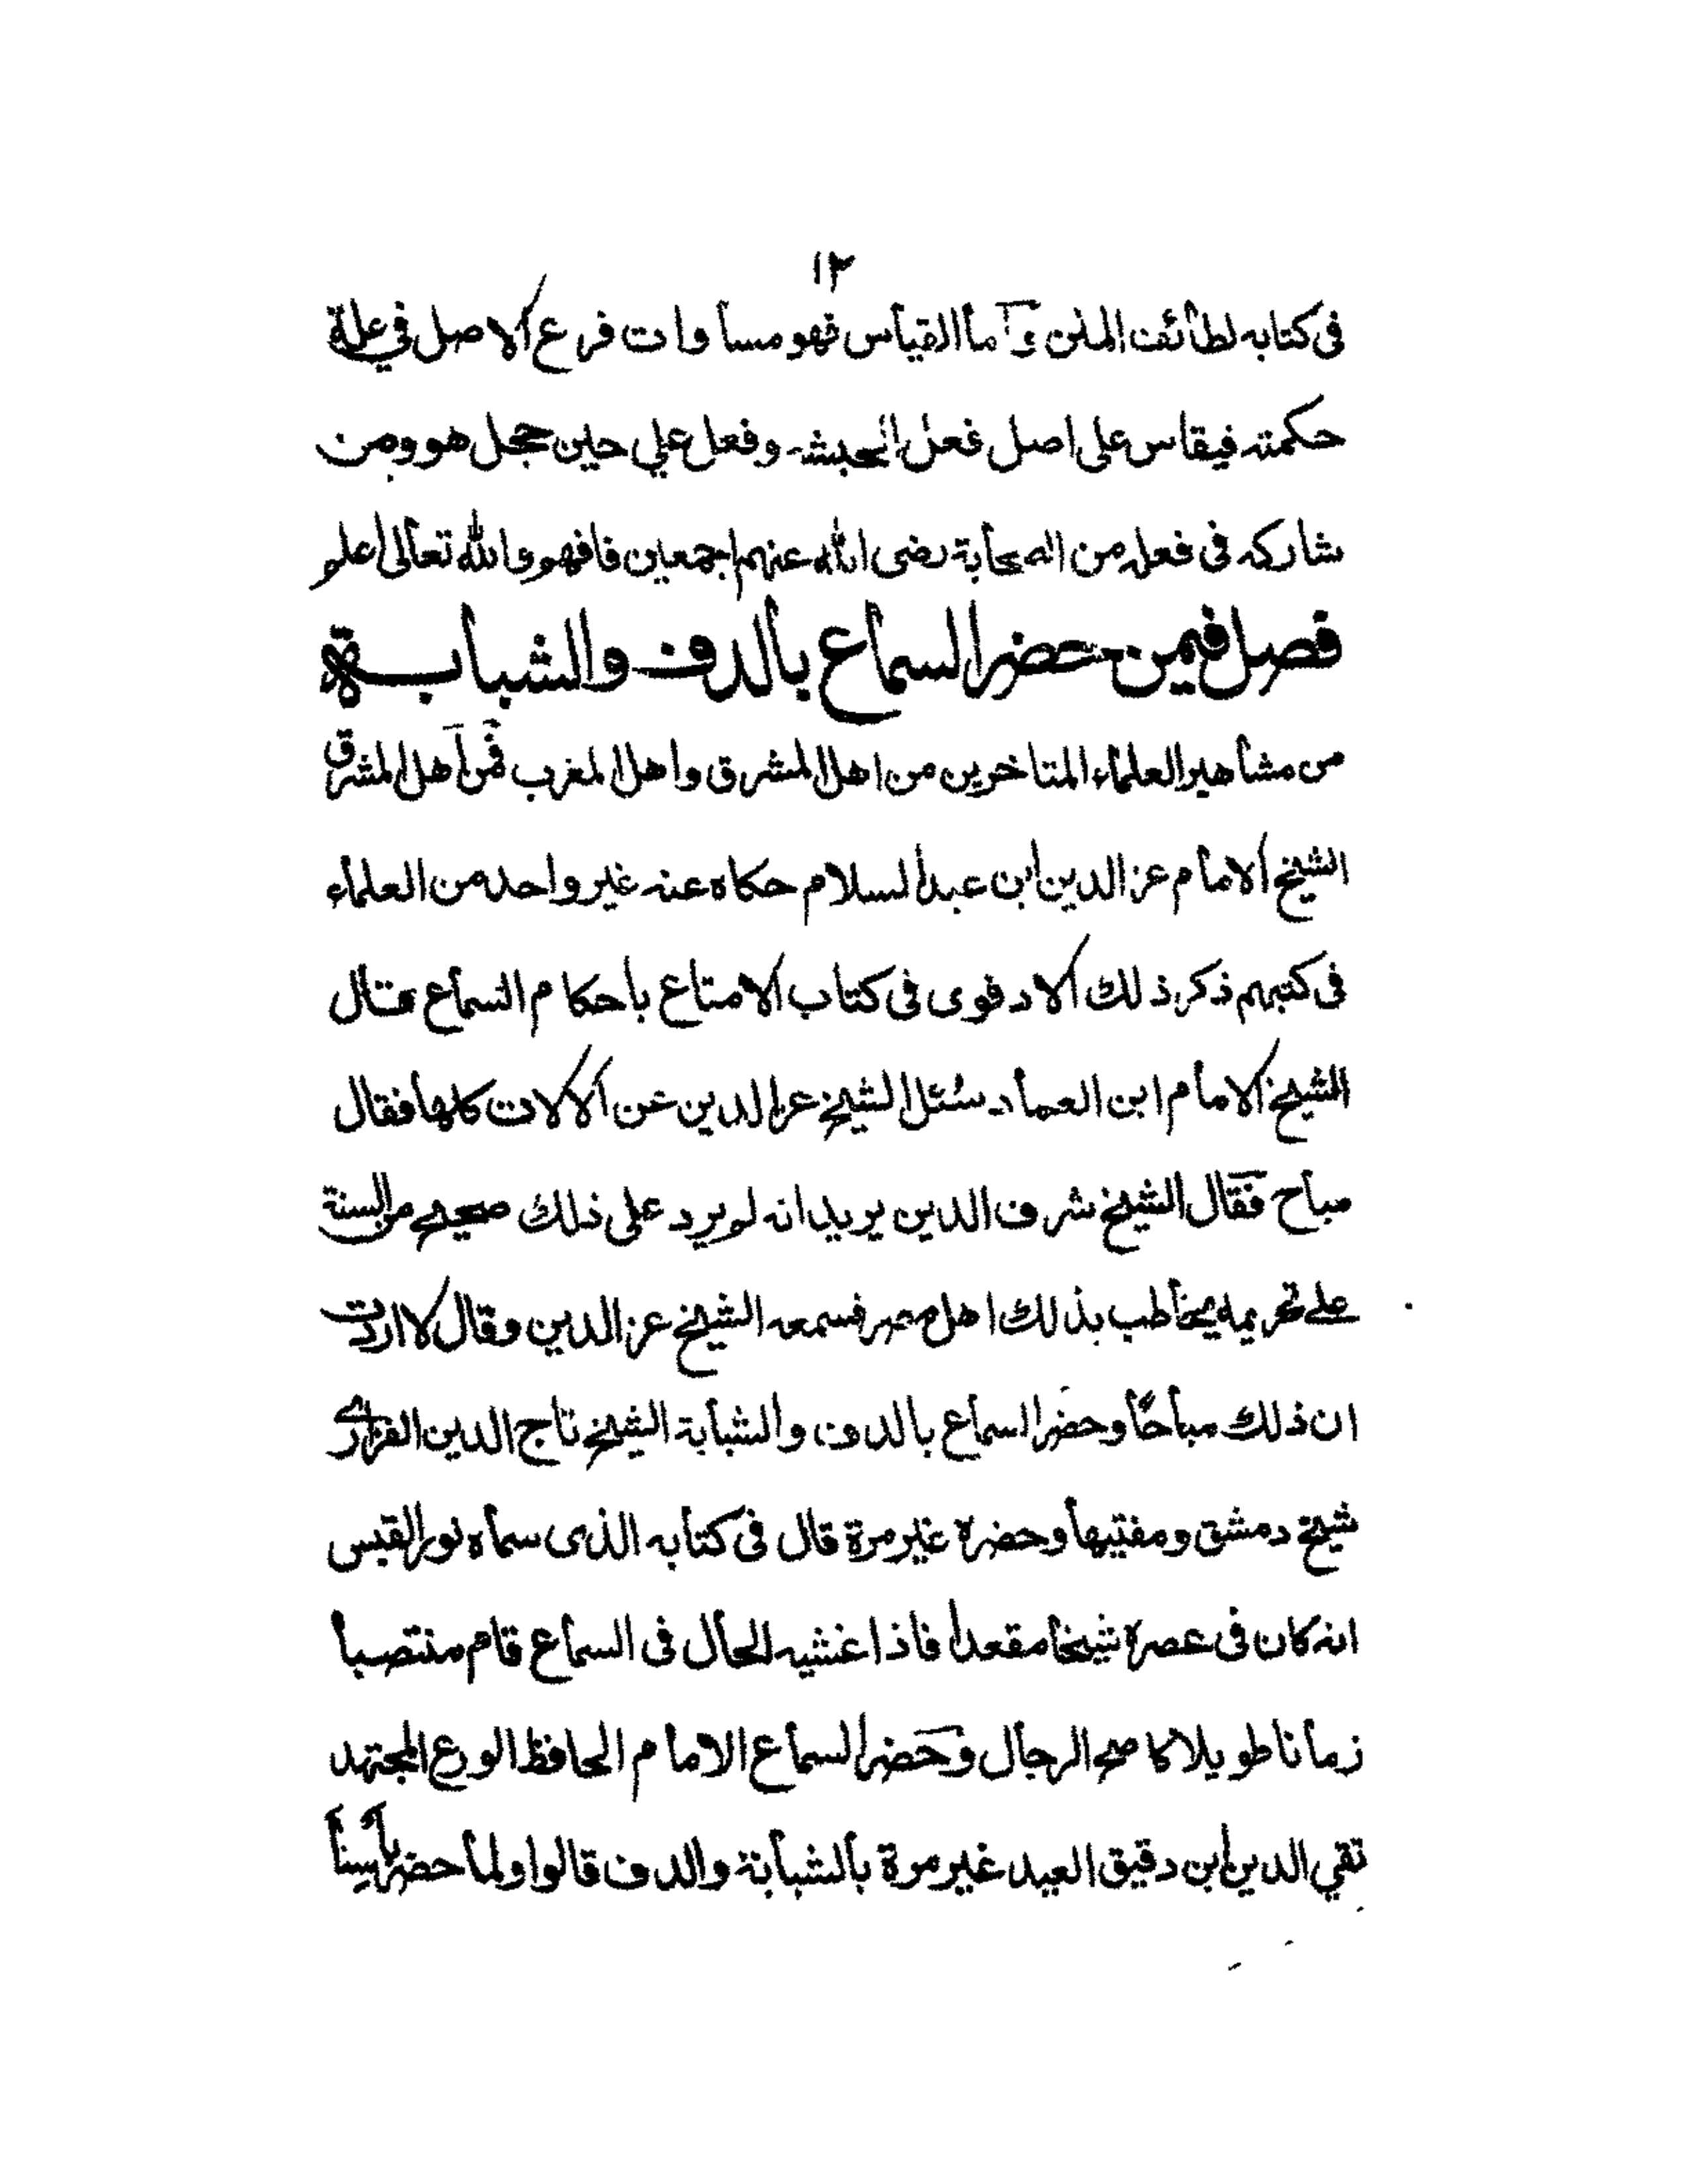 ١٢
فى كتابه لطائف المنن وأما القياس فهو مساوات فرع الاصل في علة
حكمته فيقاس على اصل فعل الحبشه وفعل علي حين حجل هو ومن
شاركه فى فعله من الصحابة رضى الله عنهم اجمعين فافهم والله تعالى اعلم
فصل فيمن حضر السماع بالدف والشبابة
من مشاهير العلماء المتاخرين من اهل المشرق واهل المغرب فمن اهل المشرق
الشيخ الامام عز الدين ابن عبد السلام حكاه عنه غير واحد من العلماء
فى كتبهم ذكر ذلك الادفوى فى كتاب الامتاع باحكام السماع قال
الشيخ الامام ابن العماد سئل الشيخ عز الدين عن الالات كلها فقال
مباح فقال الشيخ شرف الدين يريد انه لم يرد على ذلك صحيح من السنة
على تحريمه يخاطب بذلك اهل مصر فسمعه الشيخ عز الدين وقال لا اردت
ان ذلك مباحًا وحضر السماع بالدف والشبابة الشيخ تاج الدين الفزارى
شيخ دمشق ومفتيها وحضره غير مرة قال فى كتابه الذى سماه نور القبس
انه كان فى عصره شيخا مقعدا فاذا غشيه الحال فى السماع قام منتصبا
زمانا طويلا كاصح الرجال وحضر السماع الامام الحافظ الورع المجتهد
تقي الدين ابن دقيق العيد غير مرة بالشبابة والدف قالوا ولما حضر